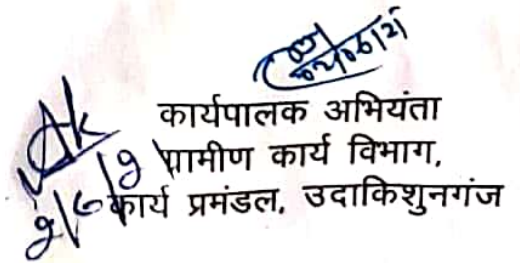 कार्यपालक अभियंता
ग्रामीण कार्य विभाग,
कार्य प्रमंडल, उदाकिशुनगंज